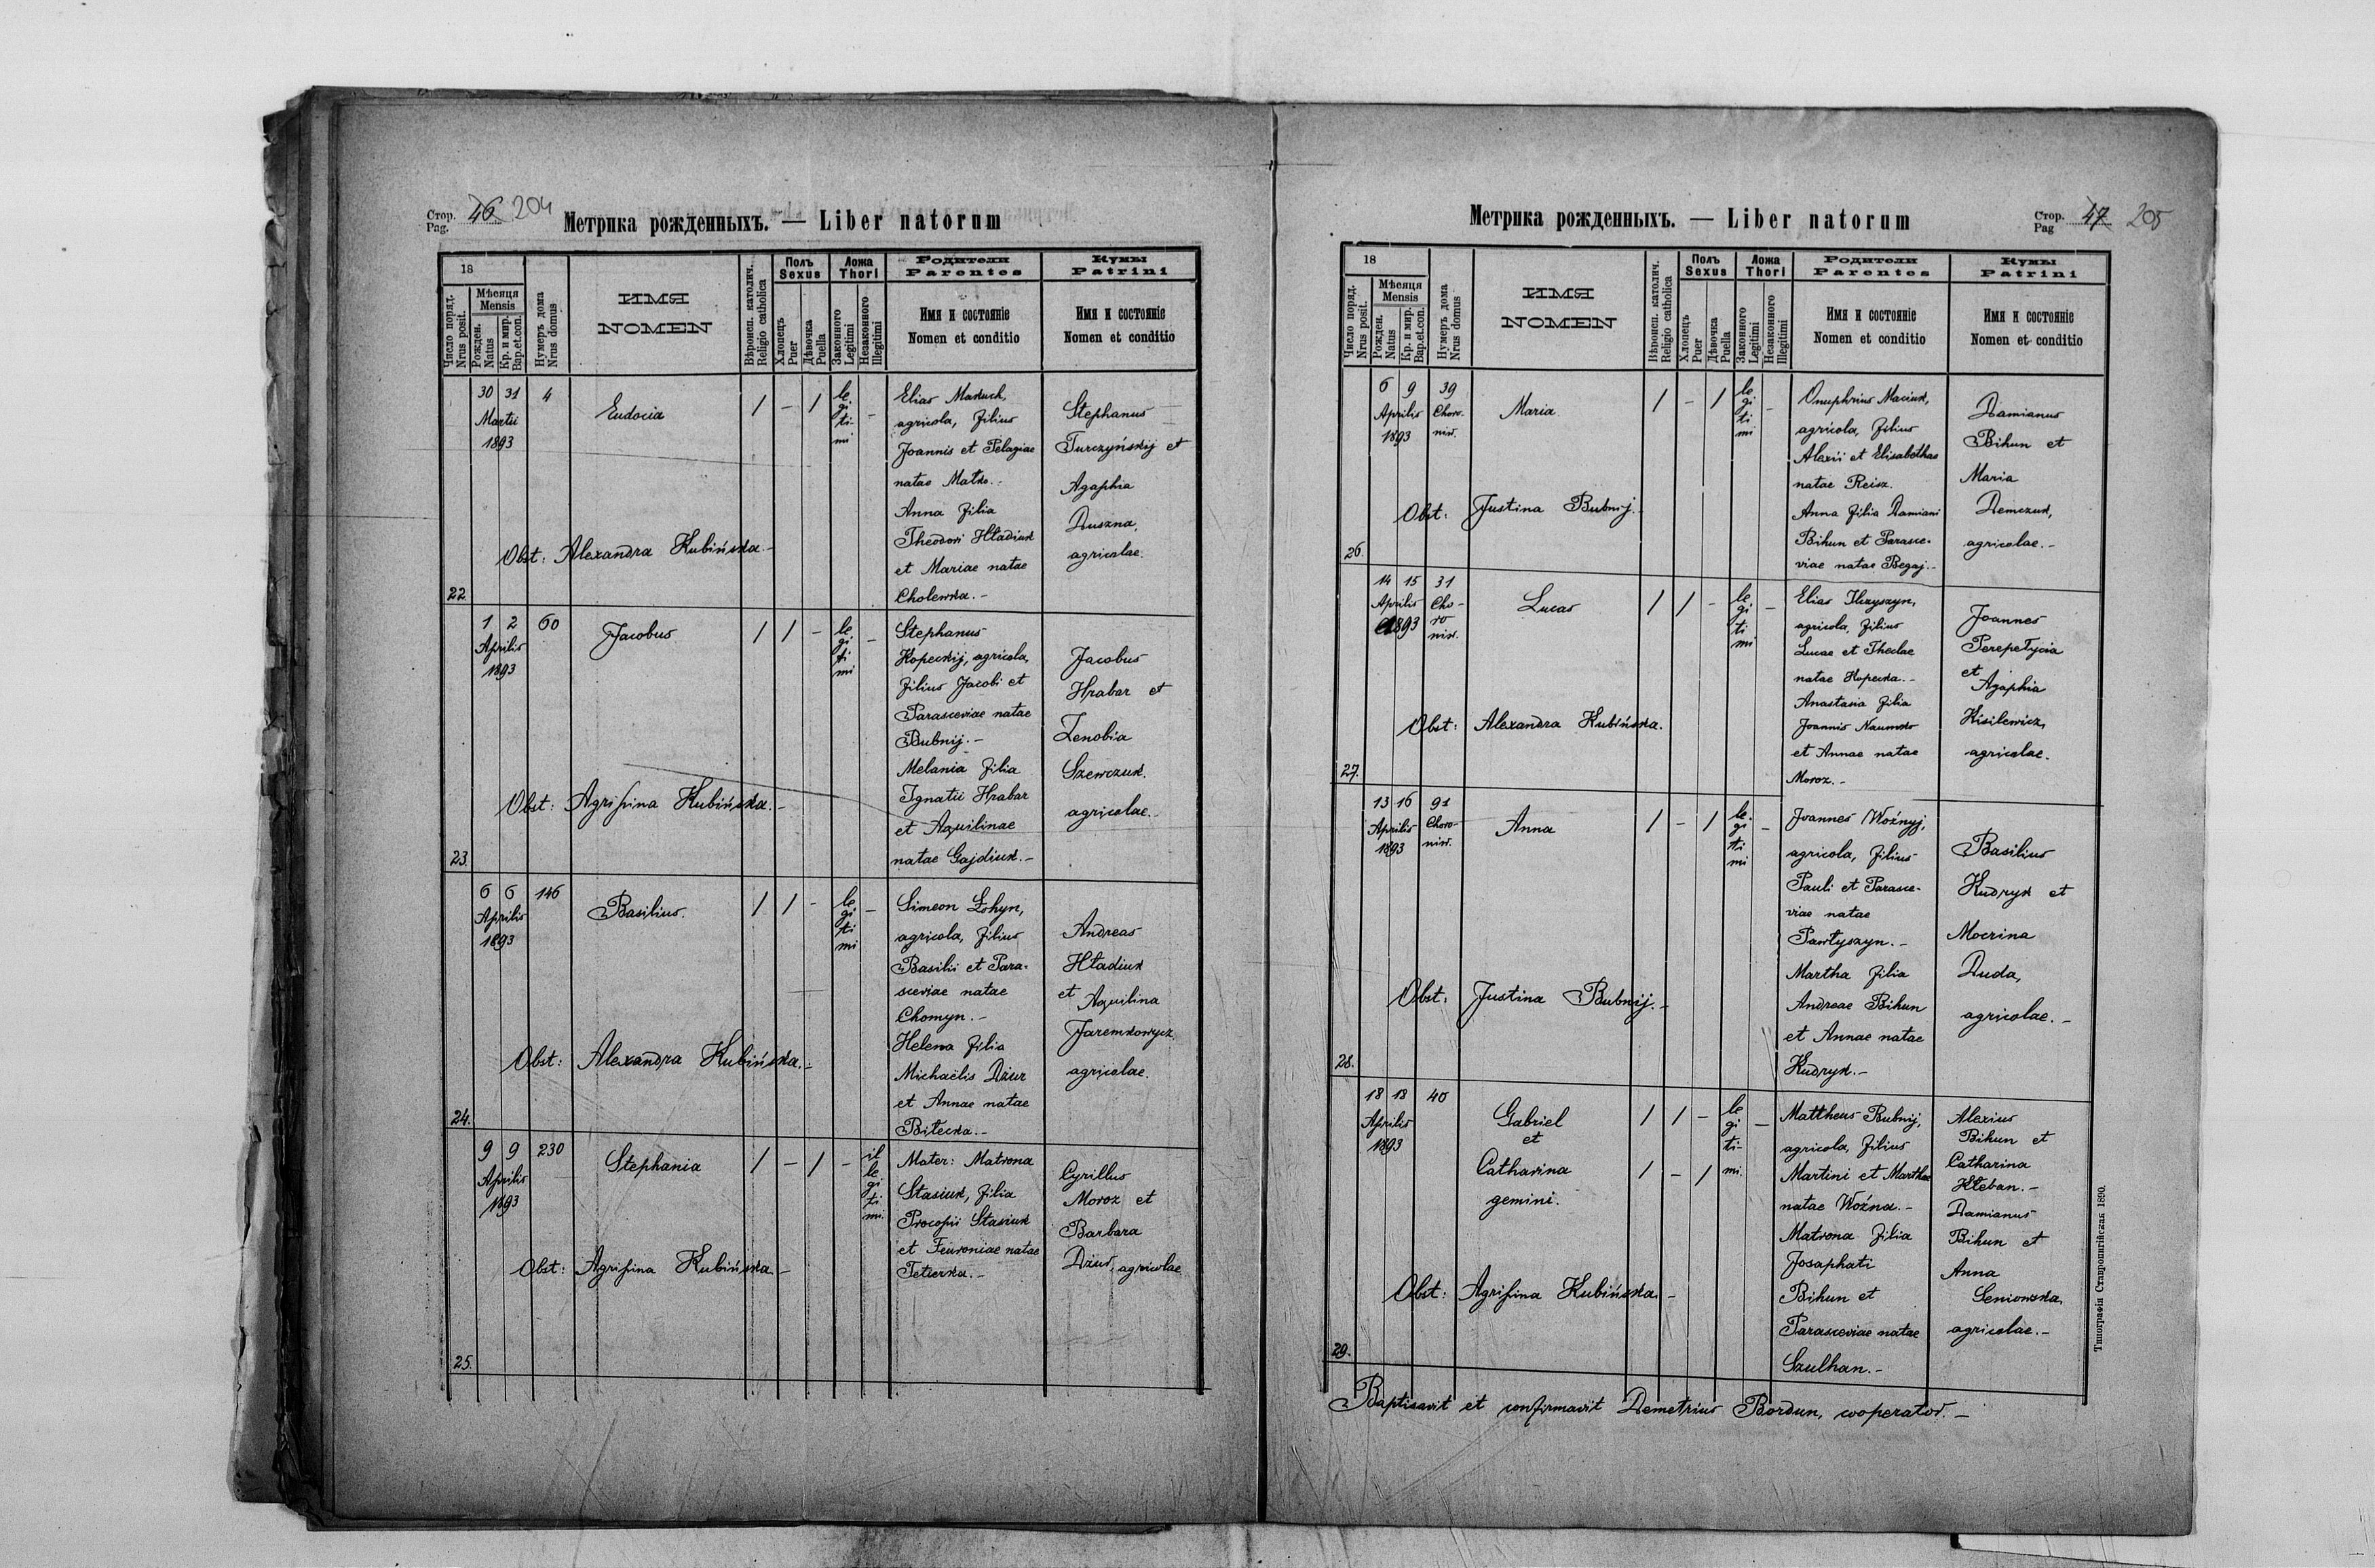 Стор. Pag. 46 204
Метрика рожденныхъ. — Liber natorum
18
Число поряд. Nrus posit.
Мѣсяця Mensis
Рожден. Natus
Кр. и мир. Bap.et.con.
Нумеръ дома Nrus domus
ИМЯ NOMEN
Вѣроисп. католич. Religio catholica
Полъ Sexus
Хлопецъ Puer
Дѣвочка Puella
Ложа Thori
Законного Legitimi
Незаконного Illegitimi
Родители Parentes
Имя и состоянiе
Nomen et conditio
Кумы Patrini
Имя и состоянiе
Nomen et conditio
22
30 31 4
Martii
1893
Eudocia
/ - / legitimi -
Elias
agricola, filius
Joannis et Pelagiae
natae Matko.-
Anna filia
Theodori Hładiuk
et Mariae natae
Cholewka.-
Stephanus
Turczyńskij et
Agaphia
Duszna,
agricolae.
Obst: Alexandra Kubińska.-
23.
1 2 60
Aprilis
1893
Jacobus
/ / - legitimi -
Stephanus
Kopeckij, agricola,
filius Jacobi et
Parasceviae natae
Bubnij.-
Melania filia
Ignatii Hrabar
et Aquilinae
natae Gajdiuk.-
Jacobus
Hrabar et
Zenobia
Szewczuk.
agricolae.-
Obst: Agripina Kubińska.-
24.
6 6 146
Aprilis
1893
Basilius.
/ / - legitimi -
Simeon
agricola, filius
Basilii et Para-
sceviae natae
Chomyn.-
Helena filia
Michaëlis Dżur
et Annae natae
Biłecka.-
Andreas
Hładiuk
et Aquilina
Jaremkowycz
agricolae.
Obst: Alexandra Kubińska.-
25.
9 9 230
Aprilis
1893
Stephania
/ - / - illegitimi
Mater: Matrona
Stasiuk, filia
Procopii Stasiuk
et Feuroniae natae
Cyrillus
Moroz et
Barbara
agricolae
Obst: Agripina Kubińska.-
Метрика рожденныхъ. — Liber natorum
Стор. Pag 47 205
18
Число поряд. Nrus posit.
Мѣсяця Mensis
Рожден. Natus
Кр. и мир. Bap.et.con.
Нумеръ дома Nrus domus
ИМЯ NOMEN
Вѣроисп. католич. Religio catholica
Полъ Sexus
Хлопецъ Puer
Дѣвочка Puella
Ложа Thori
Законного Legitimi
Незаконного Illegitimi
Родители Parentes
Имя и состоянiе
Nomen et conditio
Кумы Patrini
Имя и состоянiе
Nomen et conditio
26.
6 9 39
Aprilis Choro-
1893 niw.
Maria
/ - / legitimi -
Onuphrius Maciuk,
agricola, filius
Alexii et Elisabethae
natae Reisz.
Anna filia Damiani
Bihun et Parasce-
viae natae Begaj.-
Damianus
Bihun et
Maria
Demczuk,
agricolae.-
Obst: Justina Bubnij.
27.
14 15 31
Aprilis Cho-
1893 ro
niw.
Lucas
/ / - legitimi -
Elias Ilczyszyn,
agricola, filius
Lucae et Theclae
natae Kopecka.-
Anastasia filia
Joannis Naumko
et Annae natae
Moroz.-
Joannes
Perepetycia
et Agaphia
Kisilewicz,
agricolae.
Obst: Alexandra Kubińska.
28.
13 16 91
Aprilis Choro-
1893 niw.
Anna
/ - / legitimi -
Joannes Woźnyj,
agricola, filius
Pauli et Parasce-
viae natae
Pawłyszyn.-
Martha filia
Andreae Bihun
et Annae natae
Kudryk.-
Basilius
Kudryk et
Mocrina
Duda,
agricolae.-
Obst: Justina Bubnij.-
29.
18 18 40
Aprilis
1893
Gabriel
et
Catharina
gemini.
/ / - legitimi -
/ - /
Mattheus Bubnij,
agricola, filius
Martini et Marthae
natae Woźna.-
Matrona filia
Josaphati
Bihun et
Parasceviae natae
Szulhan.-
Alexius
Bihun et
Catharina
Hłeban.-
Damianus
Bihun et
Anna
Seniowska,
agricolae.-
Obst: Agripina Kubińska.-
Baptisavit et confirmavit Demetrius Bordun, cooperator.-
Типографiя Ставропигiйская 1890.